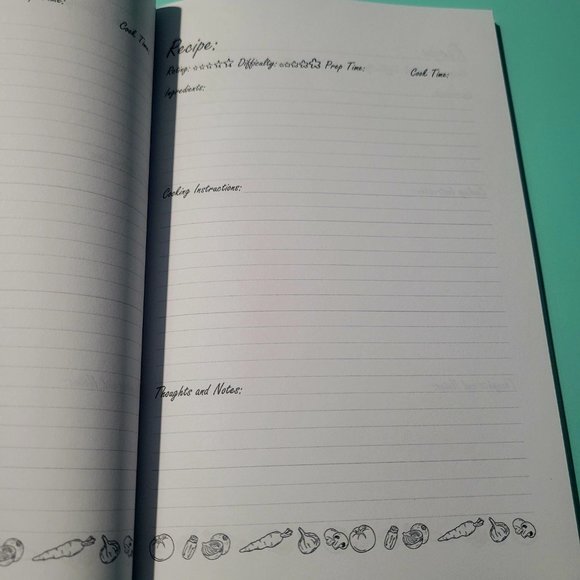 Time:
Cook Time:
Recipe:
Rating: ☆☆☆☆☆ Difficulty: ☆☆☆☆☆ Prep Time: Cook Time:
Ingredients:
Cooking Instructions:
Thoughts and Notes: